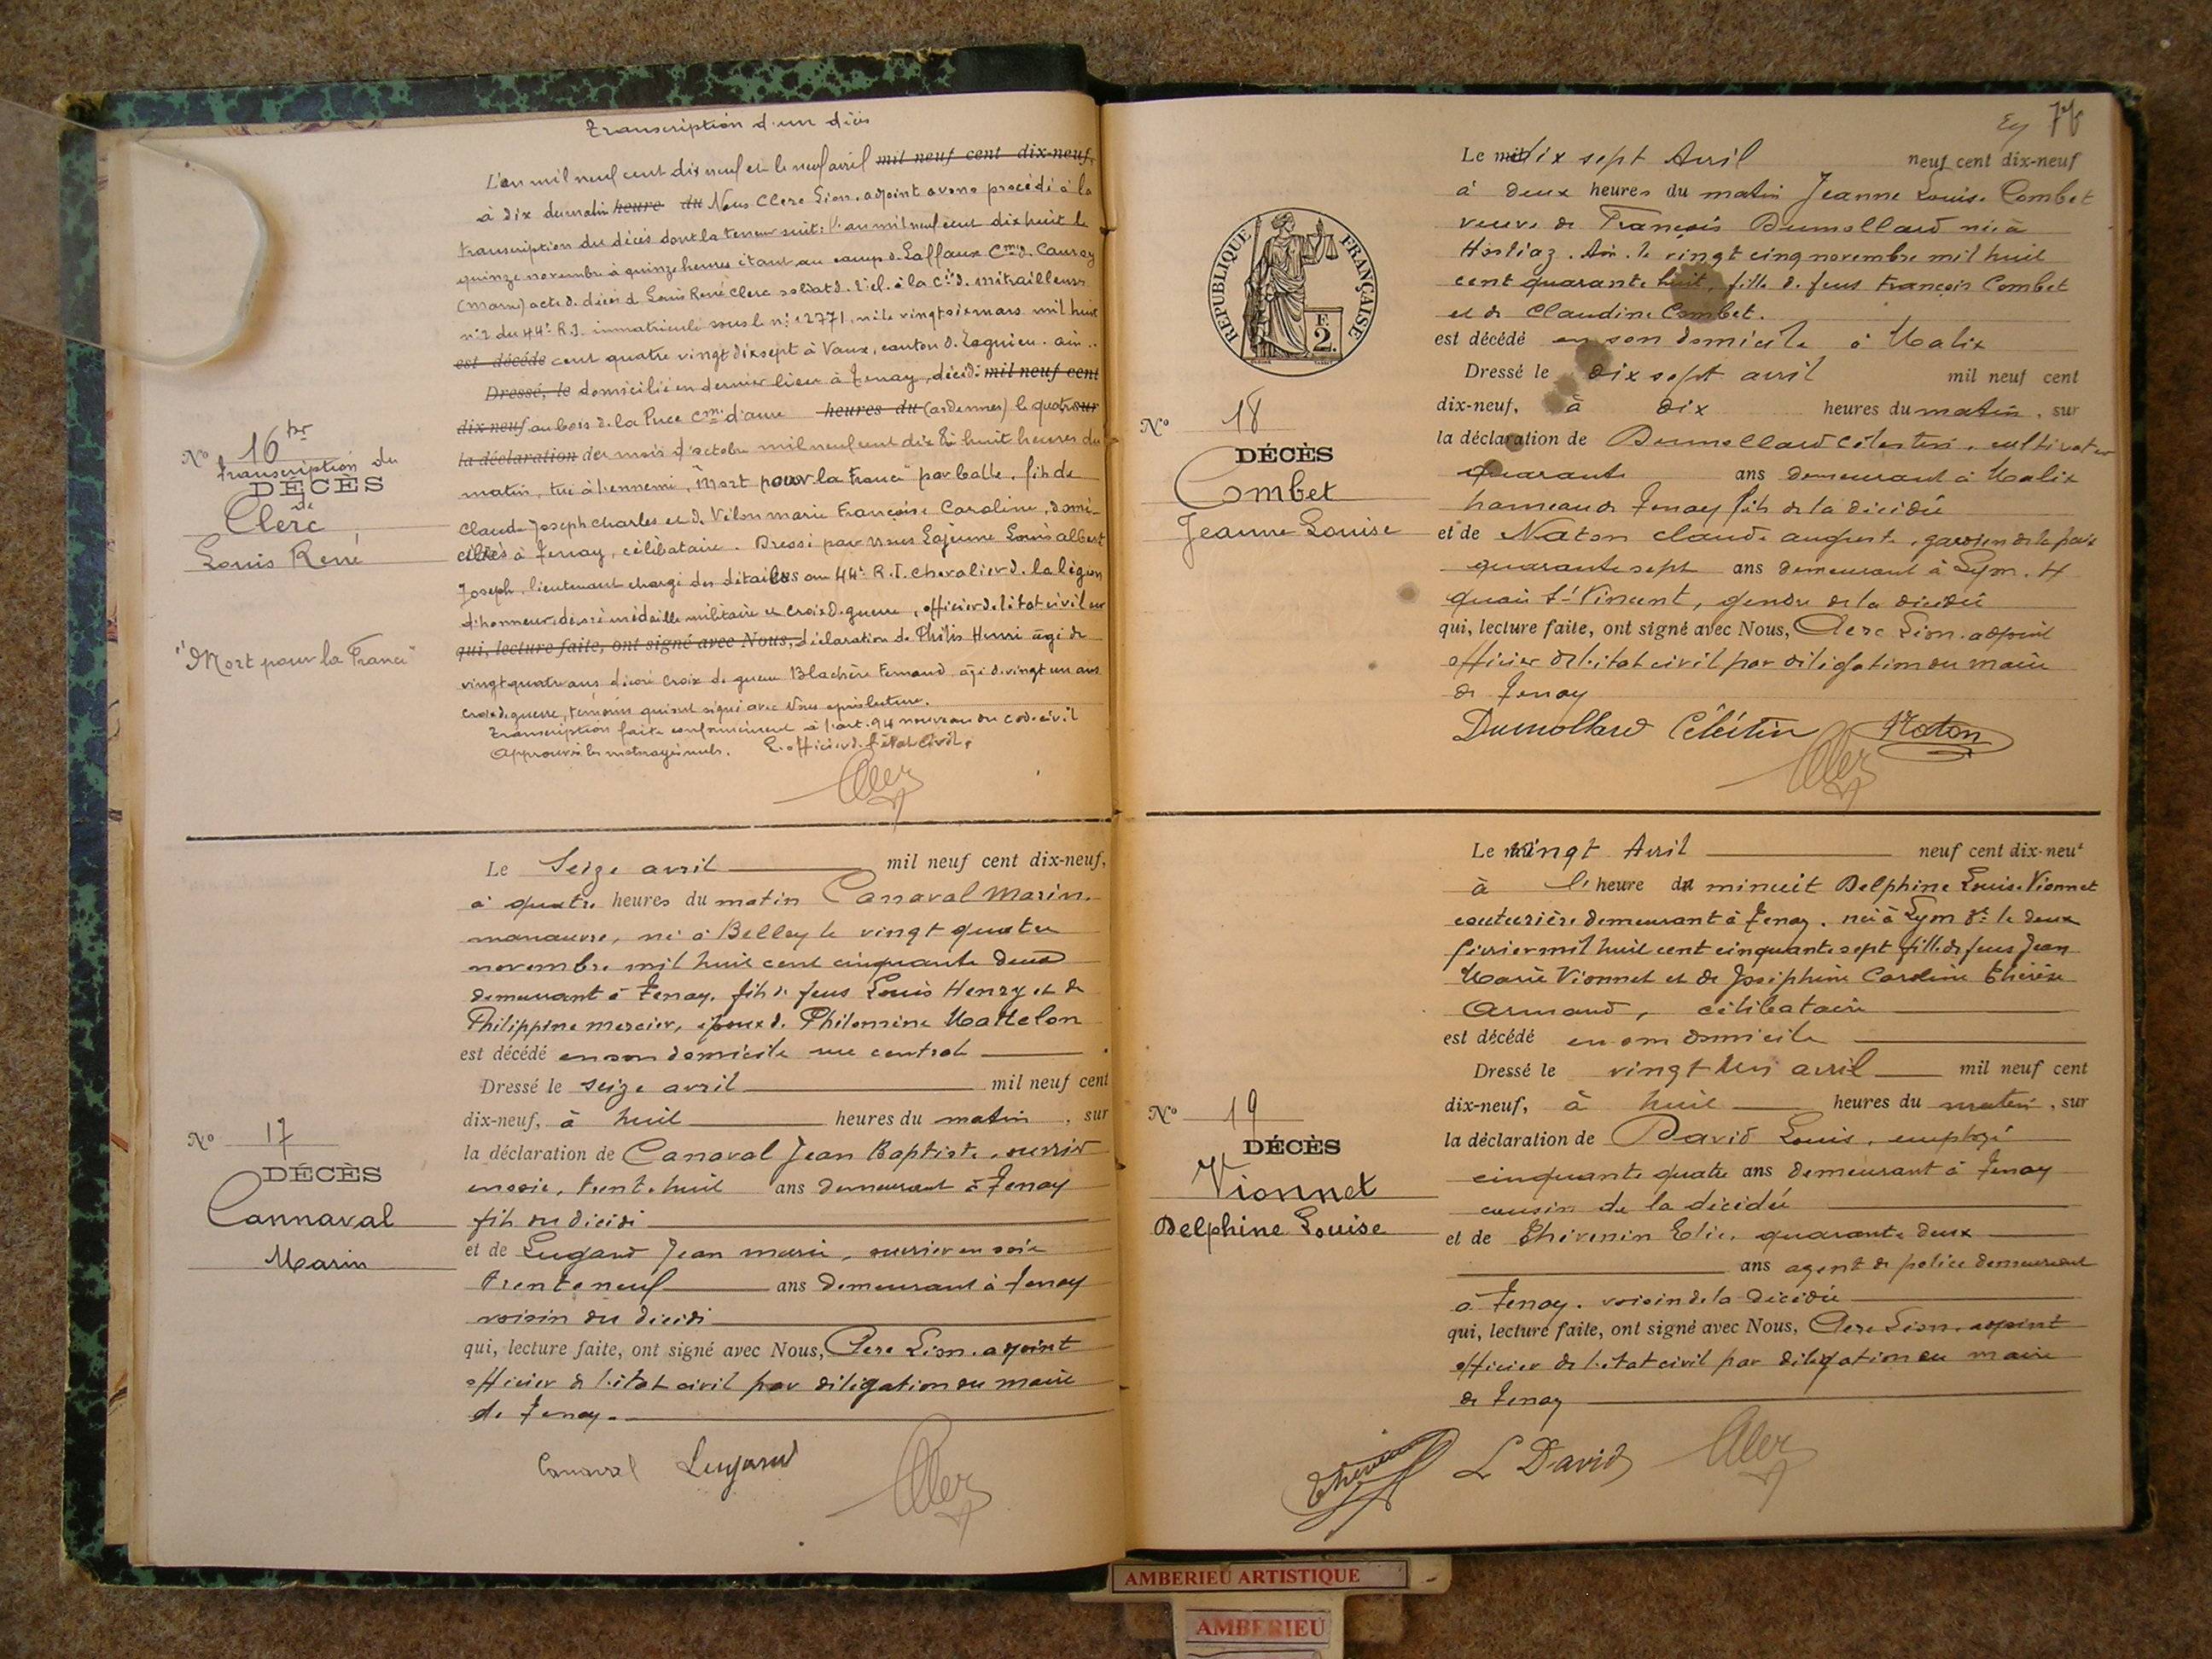 Transcription d'un décès
L'an mil neuf cent dix neuf et le neuf avril mil neuf cent dix-neuf,
à dix du matin heure du Nous Clerc Léon, adjoint avons procédé à la
transcription du décès dont la teneur suit: l'an mil neuf cent dix huit le
quinze novembre à quinze heures étant au camp d. Laffaux Cne d. Cauroy
(Marne) acte d. décès d Louis René Clerc soldat d. 2e cl. à la Cie d. mitrailleuses
n°2 du 44e R.I. immatriculé sous le n° 12771, né le vingt six mars mil huit
est décédé cent quatre vingt dix sept à Vaux, canton d. Lagnieu. ain..
Dressé, le domicilié en dernier lieu à Tenay, décédé mil neuf cent
dix-neuf au bois d. la Puce Cne d'aure heures du (ardennes) le quatre sur
la déclaration de du mois d'octobre mil neuf cent dix huit heures du
matin, tué à l'ennemi, "Mort pour la France" par balle, fils de
Claude Joseph Charles et d. Velon marie Françoise Caroline, domi-
ciliés à Tenay, célibataire. Dressé par nous Lajeune Louis albert
Joseph, lieutenant chargé des détails au 44e R.I. chevalier d. la légion
d'honneur, décoré médaille militaire et croix d. guerre, officier d. l'état civil sur
qui, lecture faite, ont signé avec Nous, déclaration de Philis Henri âgé de
vingt quatre ans décoré croix de guerre Blachère Fernand, âgé d. vingt un ans
croix d. guerre, témoins qui ont signé avec Nous après lecture.
Transcription faite conformément à l'art. 94 nouveau du code civil
Approuvé les mots rayés nuls. L'officier d. l'état civil,
Clerc
N° 16
transcription du
DÉCÈS
de
Clerc
Louis René
"Mort pour la France"
Le Seize avril mil neuf cent dix-neuf,
à quatre heures du matin Canaval Marin,
manœuvre, né à Belley le vingt quatre
novembre mil huit cent cinquante deux
demeurant à Tenay, fils d. feus Louis Henry et de
Philippine Mercier, époux d. Philomène Mattelon
est décédé en son domicile rue central
Dressé le seize avril mil neuf cent
dix-neuf, à huit heures du matin, sur
la déclaration de Canaval Jean Baptiste, ouvrier
en soie, trente huit ans demeurant à Tenay
fils du décédé
et de Lugand Jean marie, ouvrier en soie
trente neuf ans demeurant à Tenay
voisin du décédé
qui, lecture faite, ont signé avec Nous, Clerc Léon, adjoint
officier de l'état civil par délégation du maire
de Tenay.
Canaval Lugand Clerc
N° 17
DÉCÈS
Cannaval
Marin
Le dix sept Avril neuf cent dix-neuf
à deux heures du matin Jeanne Louise Combet
veuve de François Dumollard née à
Hostiaz. Ain. le vingt cinq novembre mil huit
cent quarante huit, fille d. feus François Combet
et de Claudine Combet.
est décédé en son domicile à Malix
Dressé le dix sept avril mil neuf cent
dix-neuf, à dix heures du matin, sur
la déclaration de Dumollard Célestin, cultivateur
quarante ans demeurant à Malix
hameau de Tenay fils de la décédée
et de Naton claude auguste, gardien de la paix
quarante sept ans demeurant à Lyon. 4
quai St Vincent, gendre de la décédée
qui, lecture faite, ont signé avec Nous, Clerc Léon, adjoint
officier de l'état civil par délégation du maire
de Tenay
Dumollard Célestin Naton
Clerc
RÉPUBLIQUE FRANÇAISE
F.
2.
N° 18
DÉCÈS
Combet
Jeanne Louise
Le vingt Avril neuf cent dix-neuf
à l'heure de minuit Delphine Louise Vionnet
couturière demeurant à Tenay. née à Lyon 2e le deux
février mil huit cent cinquante sept fille de feus Jean
Marie Vionnet et de Joséphine Caroline Thérèse
Armand, célibataire
est décédé en son domicile
Dressé le vingt un avril mil neuf cent
dix-neuf, à huit heures du matin, sur
la déclaration de David Louis, employé
cinquante quatre ans demeurant à Tenay
cousin de la décédée
et de Thévenin Elie, quarante deux
ans agent de police demeurant
à Tenay. voisin de la décédée
qui, lecture faite, ont signé avec Nous, Clerc Léon, adjoint
officier de l'état civil par délégation du maire
de Tenay
Thévenin L David Clerc
N° 19
DÉCÈS
Vionnet
Delphine Louise
AMBERIEU ARTISTIQUE
AMBERIEU